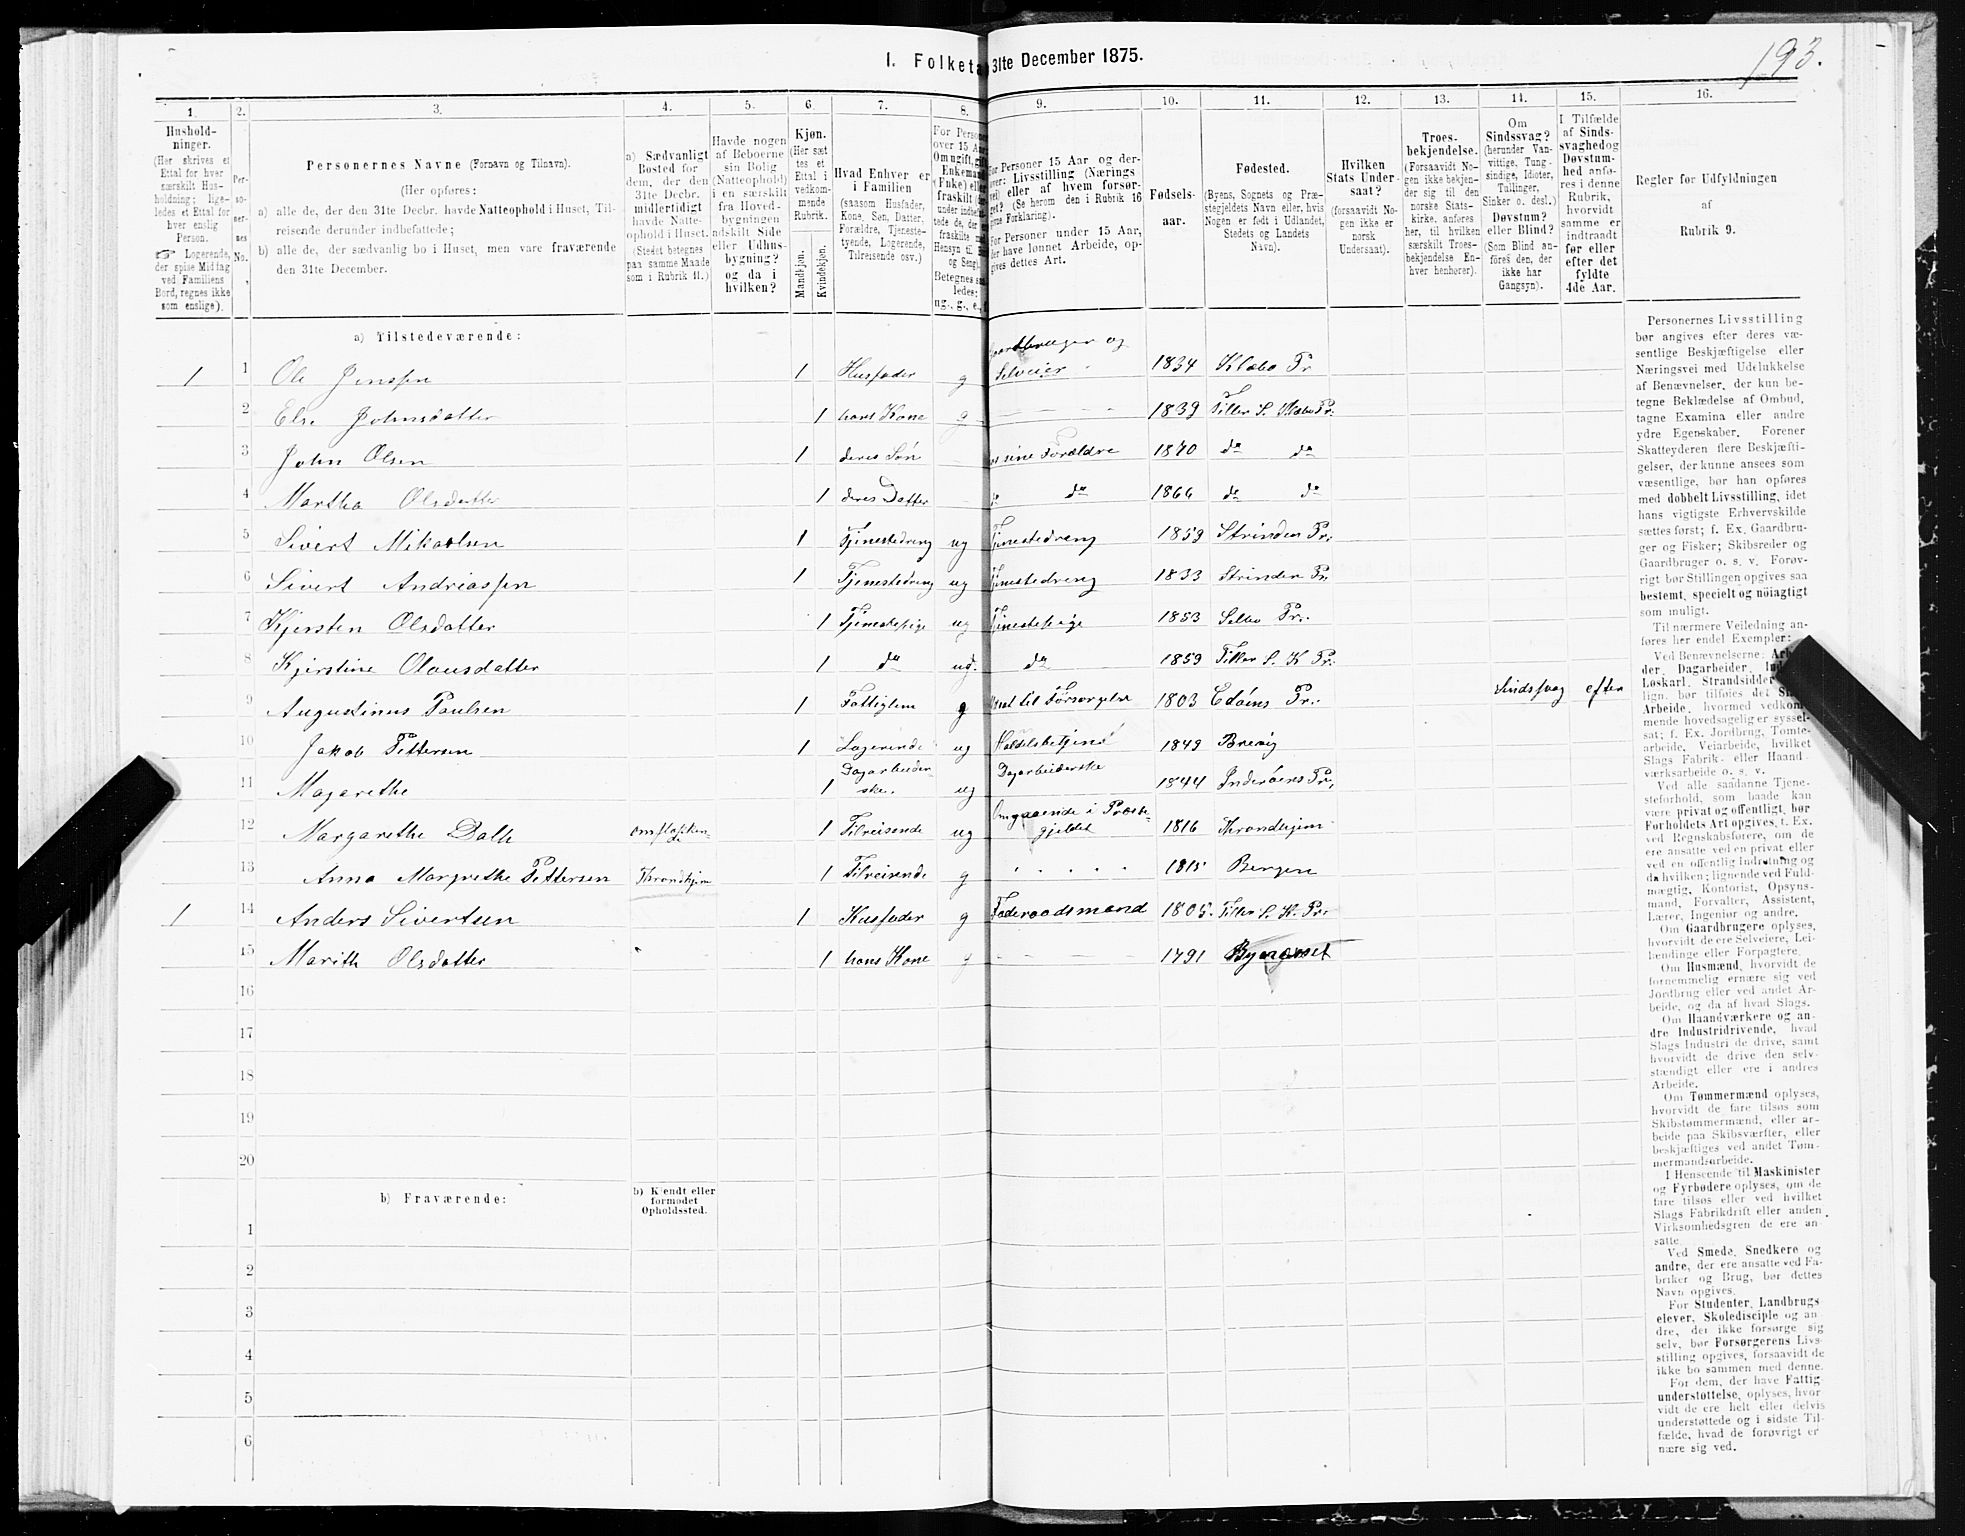 193.
I. Folketæ 31lte December 1875.
1.
Hushold-
ninger.
(Her skrives et
Ettal for hver
særskilt Hus-
holdning; lige-
ledes et Ettal for
hver enslig
Person.
☞ Logerende,
der spise Middag
ved Familiens
Bord, regnes ikke
som enslige).
2.
Per-
so-
ner-
nes
No.
3.
Personernes Navne (Fornavn og Tilnavn).
(Her opføres:
a) alle de, der den 31te Decbr. havde Natteophold i Huset, Til-
reisende derunder indbefattede;
b) alle de, der sædvanlig bo i Huset, men vare fraværende
den 31te December.
4.
a) Sædvanligt
Bosted for
dem, der den
31te Decbr.
midlertidigt
havde Natte-
ophold i Huset.
(Stedet betegnes
paa samme Maade
som i Rubrik 11.)
5.
Havde nogen
af Beboerne
sin Bolig
(Natteophold)
i en særskilt
fra Hoved-
bygningen
adskilt Side
eller Udhus-
bygning?
og da i
hvilken?
6.
Kjøn.
(Her sæt-
tes et
Ettal i
vedkom-
mende
Rubrik.
Mandkjøn.
Kvindekjøn.
7.
Hvad Enhver er
i Familien
(saasom Husfader,
Kone, Søn, Datter,
Forældre, Tjeneste-
tyende, Logerende,
Tilreisende osv.)
8.
For Person
over 15 Aar
Om ugift, gift
Enkemand
(Enke) eller
fraskilt
Betegnes saa
ledes:
ug., g., e., f.
9.
For Personer 15 Aar og der-
over: Livsstilling (Nærings
vei) eller af hvem forsør-
get? (Se herom den i Rubrik 16
givne Forklaring).
For Personer under 15 Aar,
der have lønnet Arbeide, op-
gives dettes Art.
10.
Fødsels-
aar.
11.
Fødested.
(Byens, Sognets og Præ-
stegjeldets Navn eller, hvis
Nogen er født i Udlandet,
Stedets og Landets
Navn).
12.
Hvilken
Stats Under-
saat?
(forsaavidt No-
gen ikke er
norsk
Undersaat).
13.
Troes-
bekjendelse.
(Forsaavidt No-
gen ikke bekjen-
der sig til den
norske Stats-
kirke, anføres
her, til hvilken
særskilt Troes-
bekjendelse En-
hver henhører).
14.
Om
Sindssvag?
(herunder Van-
vittige, Tung-
sindige, Idioter,
Tullinger,
Sinker o. desl.)
Døvstum?
eller Blind?
(Som Blind an-
føres den, der
ikke har
Gangsyn).
15.
I Tilfælde
af Sinds-
svaghed og
Døvstum-
hed anfø-
res i denne
Rubrik,
hvorvidt
samme er
indtraadt
før eller
efter det
fyldte
4de Aar.
16.
Regler for Udfyldningen
af
Rubrik 9.
a) Tilstedeværende:
1 1 Ole Jenssen 1 Husfader g Gaardbruger og Selveier 1834 Klæbo Pr
2 Else Johnsdatter 1 hans Kone g 1839 Tiller S. Klæbo Pr.
3 John Olsen 1 deres Søn sine Forældre 1870 do do
4 Martha Olsdatter 1 deres Datter do do 1866 do do
5 Sivert Mikaelsen 1 Tjenestedreng ug Tjenestedreng 1859 Strinden Pr.
6 Sivert Andriassen 1 Tjenestedreng ug Tjenestedreng 1833 Strinden Pr.
7 Kjersten Olsdatter 1 Tjenestepige ug Tjenestepige 1853 Selbo Pr.
8 Kjerstine Olausdatter 1 do ug. do 1859 Tiller S. K Pr.
9 Augustinus Paulsen 1 Fattiglem g sat til Forsørgelse 1803 Edøens Pr. Sindssvag efter
10 Jakob Pettersen 1 Logerende ug Handelsbetjent 1849 Brevig
11 Magarethe 1 Dagarbeider-
ske. ug Dagarbeiderske 1844 Inderøens Pr.
12 Margarethe Dalh omflakken-
de 1 Tilreisende ug Omgaaende i Præste-
gjeldet 1816 Throndhjem
13 Anna Margrethe Pettersen Throndhjem 1 Tilreisende g 1815 Bergen
1 14 Anders Sivertsen 1 Husfader g Føderaadsmand 1805. Tiller S. K. Pr.
15 Marith Olsdatter 1 hans Kone g 1791 Bynæsset
16
17
18
19
20
b) Fraværende:
b) Kjendt eller
formodet
Opholdssted.
1
2
3
4
5
6
Personernes Livsstilling
bør angives efter deres væ-
sentlige Beskjæftigelse eller
Næringsvei med Udelukkelse
af Benævnelser, der kun be-
tegne Beklædelse af Ombud,
tagne Examina eller andre
ydre Egenskaber. Forener
Skatteyderen flere Beskjæfti-
gelser, der kunne ansees som
væsentlige, bør han opføres
med dobbelt Livsstilling, idet
hans vigtigste Erhvervskilde
sættes først; f. Ex. Gaardbru-
ger og Fisker; Skibsreder og
Gaardbruger o. s. v. Forøv-
rigt bør Stillingen opgives saa
bestemt, specielt og nöiagtigt
som muligt.
Til nærmere Veiledning an-
føres her endel Exempler:
Ved Benævnelserne: Ar
der, Dagarbeider, In
Løskarl, Strandsidder
lign. bør tilføies det S
Arbeide, hvormed vedkom-
mende hovedsagelig er syssel-
sat; f. Ex. Jordbrug, Tomte-
arbeide, Veiarbeide, hvilket
Slags Fabrik- eller Haand-
værksarbeide o. s. v.
Ved alle saadanne Tjene-
steforhold, som baade kan
være privat og offentligt, bør
Forholdets Art opgives, f. Ex.
ved Regnskabsførere, om de
ere ansatte ved en privat eller
ved en offentlig Indretning og
da hvilken; lignende ved Fuld-
mægtig, Kontorist, Opsyns-
mand, Forvalter, Assistent,
Lærer, Ingeniør og andre.
Om Gaardbrugere oplyses,
hvorvidt de ere Selveiere, Lei-
lændinge eller Forpagtere.
Om Husmænd, hvorvidt de
fornemmelig ernære sig ved
Jordbrug eller ved andet Ar-
beide, og da af hvad Slags.
Om Haandværkere og an-
dre Industridrivende, hvad
Slags Industri de drive, samt
hvorvidt de drive den selv-
stændigt eller ere i andres
Arbeide.
Om Tømmermænd oplyses,
hvorvidt de fare tilsøs som
Skibstømmermænd, eller ar-
beide paa Skibsværfter, eller
beskjæftiges ved andet Tøm-
mermandsarbeide.
I Henseende til Maskinister
og Fyrbødere oplyses, om de
fare tilsøs eller ved hvilket
Slags Fabrikdrift eller anden
Virksomhedsgren de ere an-
satte.
Ved Smede, Snedkere og
andre, der ere ansatte ved Fa-
briker og Brug, bør dettes
Navn opgives.
For Studenter, Landbrugs-
elever, Skoledisciple og an-
dre, der ikke forsørge sig
selv, bør Forsørgerens Livs-
stilling opgives, forsaavidt de
ikke bo sammen med denne.
For dem, der have Fattig-
understøttelse, oplyses, hvor-
vidt de ere helt eller delvis
understøttede og i sidste Til-
fælde, hvad de forøvrigt er
nære sig ved.